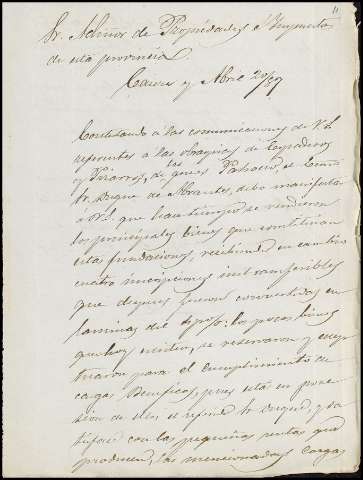 11
Sr. Admor de Propiedades é Impuestos
de esta provincia
Caceres y Abril 20/97
Contestando á las comunicaciones de V.S.
referentes á las obras pias de
y Pizarros, de que es Patrono, el Excmo
Sr. Duque de Abrantes, debo manifestar
á V.S. que hace tiempo se vendieron
los principales bienes que constituian
estas fundaciones, recibiendo en cambio
cuatro inscripciones intransferibles
que despues fueron convertidas en
laminas del 4 p%; los pocos bienes
que hoy existen, se reservaron y
para el cumplimiento de
cargas Beneficas, pues está en pose-
sion de ellos el referido Sr. Duque, y sa-
tisface con las pequeñas rentas que
producen, las mencionadas cargas